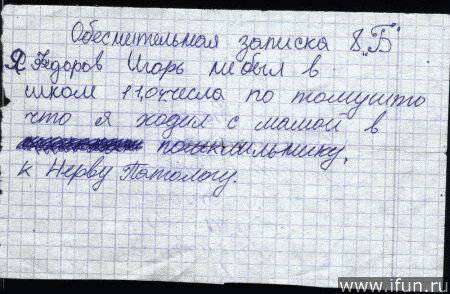 Обеснительная записка 8 „Б"
Я Федоров Игорь небыл в
школ 11,04числа по томушто
что я ходил с мамой в
поликлильнику,
к Нерву Патологу.
www.ifun.ru